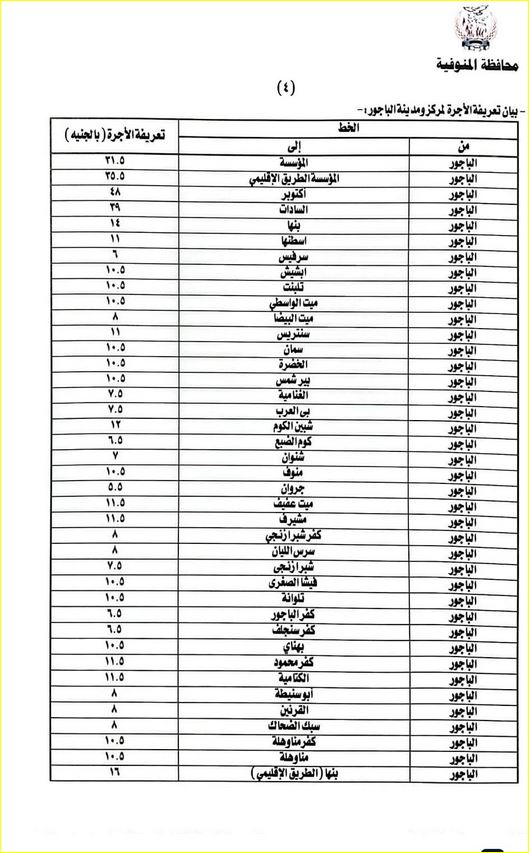 محافظة المنوفية
(٤)
- بيان تعريفة الأجرة لمركز ومدينة الباجور :-
الخط تعريفة الأجرة (بالجنيه)
من إلى
الباجور المؤسسة ٣١.٥
الباجور المؤسسة الطريق الإقليمي ٣٥.٥
الباجور أكتوبر ٤٨
الباجور السادات ٣٩
الباجور بنها ١٤
الباجور اسطنها ١١
الباجور سرفيس ٦
الباجور ابشيش ١٠.٥
الباجور تلبنت ١٠.٥
الباجور ميت الواسطي ١٠.٥
الباجور ميت البيضا ٨
الباجور سنتريس ١١
الباجور سمان ١٠.٥
الباجور الخضرة ١٠.٥
الباجور بير شمس ١٠.٥
الباجور الغنامية ٧.٥
الباجور بى العرب ٧.٥
الباجور شبين الكوم ١٢
الباجور كوم الضبع ٦.٥
الباجور شنوان ٧
الباجور منوف ١٠.٥
الباجور جروان ٥.٥
الباجور ميت عفيف ١١.٥
الباجور مشيرف ١١.٥
الباجور كفر شبرا زنجي ٨
الباجور سرس الليان ٨
الباجور شبرا زنجى ٧.٥
الباجور فيشا الصغرى ١٠.٥
الباجور تلوانة ١٠.٥
الباجور كفر الباجور ٦.٥
الباجور كفر سنجلف ٦.٥
الباجور بهناي ١٠.٥
الباجور كفر محمود ١١.٥
الباجور الكتامية ١١.٥
الباجور أبو سنيطة ٨
الباجور القرنين ٨
الباجور سبك الضحاك ٨
الباجور كفر مناوهلة ١٠.٥
الباجور مناوهلة ١٠.٥
الباجور بنها (الطريق الإقليمي) ١٦